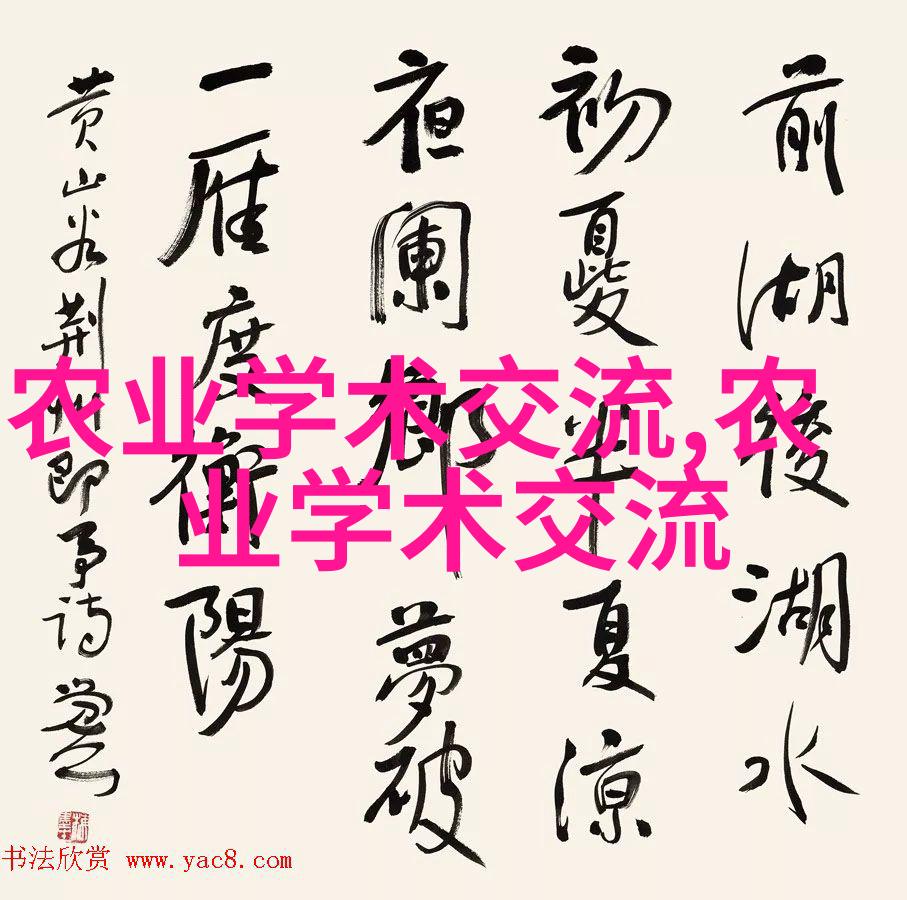 前湖後湖水
初夏半夏涼
夜闌鄉夢破
一雁度衡陽
黄山谷荆州即事诗
农业学术交流,农
业学术交流
书法欣赏 www.yac8.com